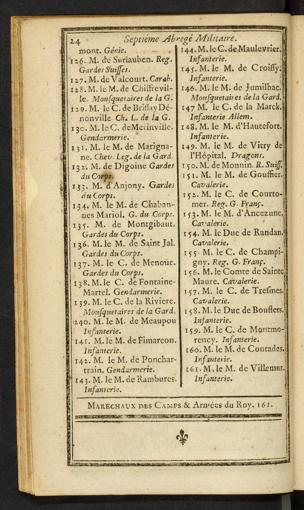 24 Septiéme Abregé Militaire.
mont. Génie.
126. M. de Surlauben. Reg.
Gardes Suisses.
127. M. de Valcourt. Carab.
128. M. le M. de Chiffrevil-
le. Mousquetaires de la G.
129. M. le C. de Brissay Dé-
nonville Ch. L. de la G.
130. M. le C. de Merinville.
Gendarmerie.
131. M. le M. de Matigna-
ne. Chev. Leg. de la Gard.
132. M. de Digoine Gardes
du Corps.
133. M. d'Anjony. Gardes
du Corps.
134. M. le M. de Chaban-
nes Mariol. G. du Corps.
135. M. de Montgibaut.
Gardes du Corps.
136. M. le M. de Saint Jal.
Gardes du Corps.
137. M. le C. de Menoüe.
Gardes du Corps.
138. M. le C. de Fontaine-
Martel. Gendarmerie.
139. M. le C. de la Riviere.
Mousquetaires de la Gard.
240. M. le M. de Meaupou
Infanterie.
141. M. le M. de Fimarcon.
Infanterie.
142. M. le M. de Ponchar-
train. Gendarmerie.
143. M. le M. de Rambures.
Infanterie.
144. M. le C. de Maulevrier.
Infanterie.
145. M. le M. de Croissy.
Infanterie.
146. M. le M. de Jumilhac.
Mousquetaires de la Gard.
147. M. le C. de la Marck.
Infanterie Allem.
148. M. le M. d'Hautefort.
Infanterie.
149. M. le M. de Vitry de
l'Hôpital. Dragons.
150. M. de Monnin. R. Suiss.
151. M. le M. de Gouffier.
Cavalerie.
152. M. le C. de Courto-
mer. Reg. G. Franç.
153. M. le M. d'Ancezune.
Cavalerie.
154. M. le Duc de Randan.
Cavalerie.
155. M. le C. de Champi-
gny. Reg. G. Franç.
156. M. le Comte de Sainte
Maure. Cavalerie.
157. M. le C. de Tresmes.
Cavalerie.
158. M. le Duc de Bouflers.
Infanterie.
159. M. le C. de Montmo-
rency. Infanterie.
160. M. le M. de Contades.
Infanterie.
161. M. le M. de Villemur.
Infanterie.
MARECHAUX DES CAMPS & Armées du Roy. 161.